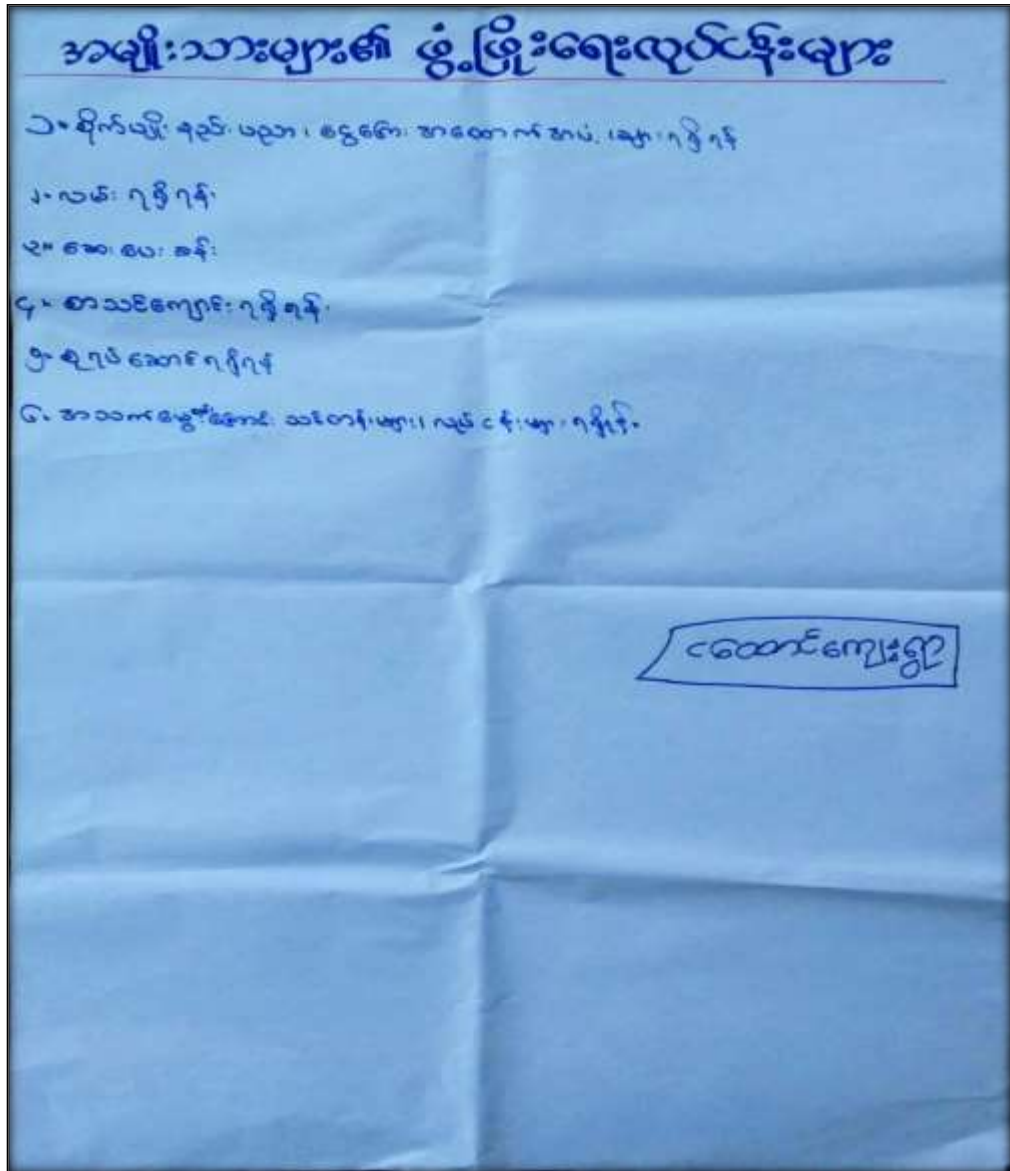 အမျိုးသားများ၏ ဖွံ့ဖြိုးရေးလုပ်ငန်းများ
၁။ စိုက်ပျိုး နည်း ပညာ၊ ငွေကြေး အထောက် အပံ့ များ ရရှိရန်
၂။ လမ်း ရရှိရန်
၃။ ဆေး ပေး ခန်း
၄။ စာသင်ကျောင်း ရရှိရန်
၅။ စုရပ် ဆောင် ရရှိရန်
၆။ အသက်မွေးဝမ်းကျောင်း သင်တန်းများ၊ လုပ် ငန်း များ ရရှိရန်။
ငထောင်ကျေးရွာ